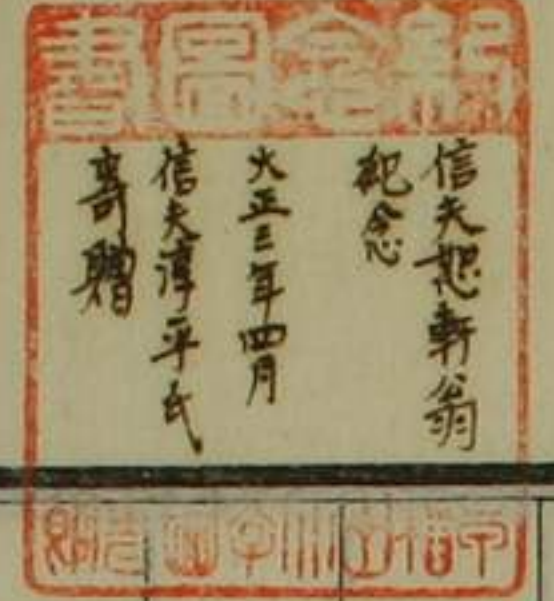 紀念圖書
信夫恕軒翁
紀念
大正三年四月
信夫淳平氏
寄贈